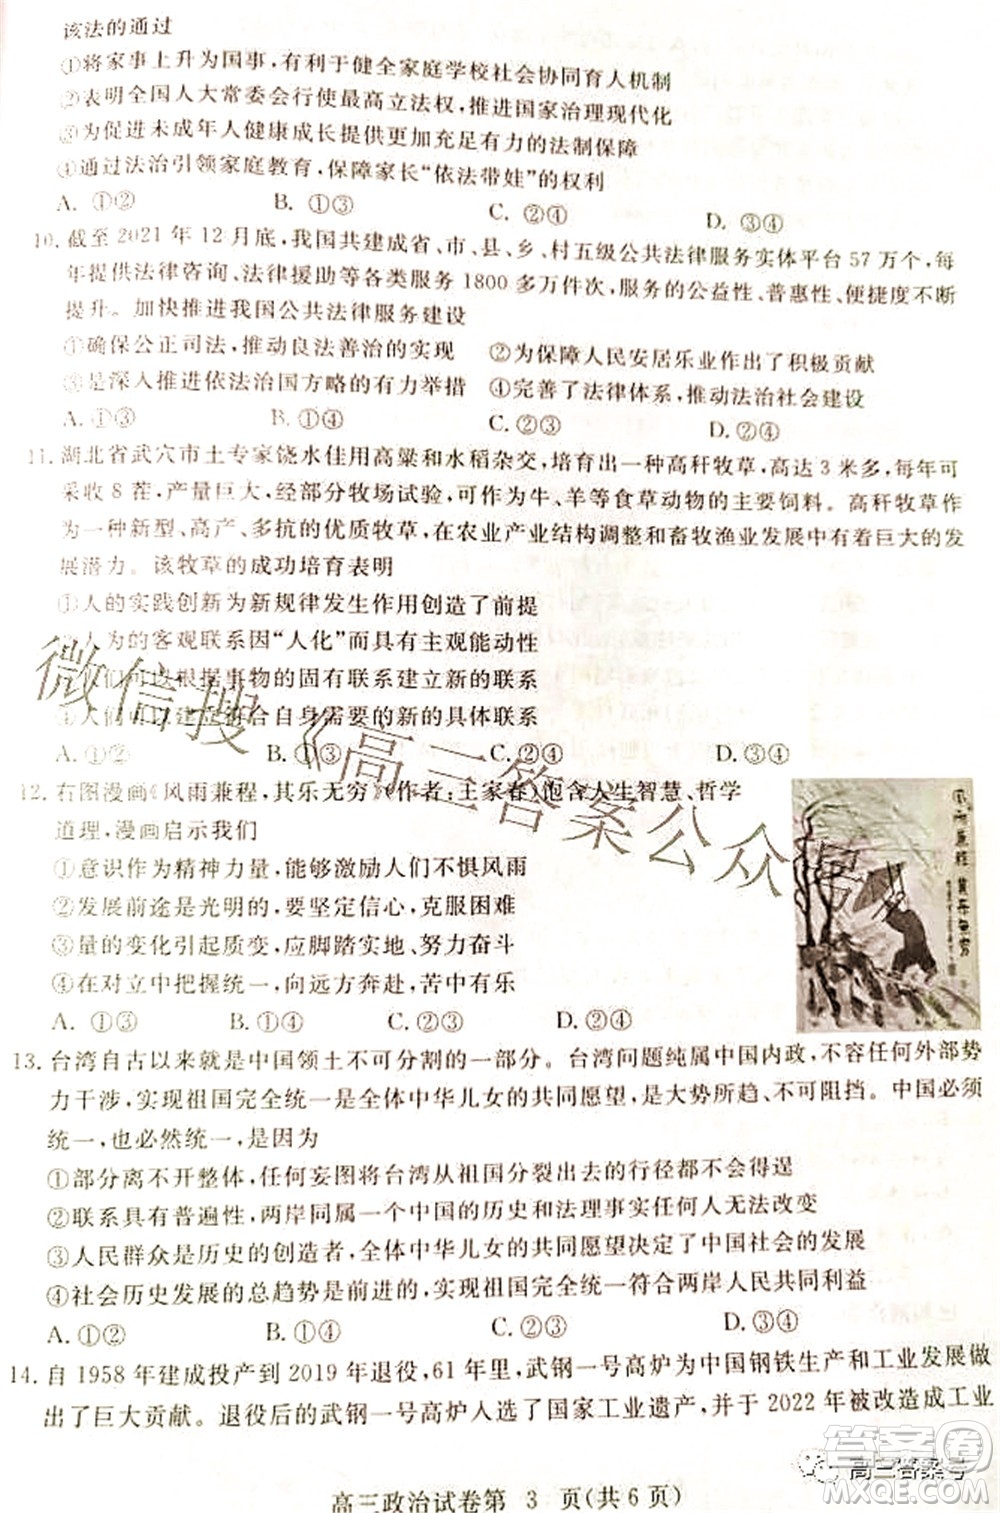 该法的通过
①将家事上升为国事,有利于健全家庭学校社会协同育人机制
②表明全国人大常委会行使最高立法权,推进国家治理现代化
③为促进未成年人健康成长提供更加充足有力的法制保障
④通过法治引领家庭教育,保障家长“依法带娃”的权利
A. ①② B. ①③ C. ②④ D. ③④
10. 截至2021年12月底,我国共建成省、市、县、乡、村五级公共法律服务实体平台57万个,每
年提供法律咨询、法律援助等各类服务1800多万件次,服务的公益性、普惠性、便捷度不断
提升。加快推进我国公共法律服务建设
①确保公正司法,推动良法善治的实现 ②为保障人民安居乐业作出了积极贡献
③是深入推进依法治国方略的有力举措 ④完善了法律体系,推动法治社会建设
A. ①③ B. ①④ C. ②③ D. ②④
11. 湖北省武穴市土专家饶水佳用高粱和水稻杂交,培育出一种高秆牧草,高达3米多,每年可
采收8茬,产量巨大,经部分牧场试验,可作为牛、羊等食草动物的主要饲料。高秆牧草作
为一种新型、高产、多抗的优质牧草,在农业产业结构调整和畜牧渔业发展中有着巨大的发
展潜力。该牧草的成功培育表明
①人的实践创新为新规律发生作用创造了前提
②人为的客观联系因“人化”而具有主观能动性
③人们可以根据事物的固有联系建立新的联系
④人们可以建立符合自身需要的新的具体联系
A. ①② B. ①③ C. ②④ D. ③④
12. 右图漫画《风雨兼程,其乐无穷》(作者:王家春)饱含人生智慧、哲学
道理,漫画启示我们
①意识作为精神力量,能够激励人们不惧风雨
②发展前途是光明的,要坚定信心,克服困难
③量的变化引起质变,应脚踏实地、努力奋斗
④在对立中把握统一,向远方奔赴,苦中有乐
A. ①③ B. ①④ C. ②③ D. ②④
风雨兼程 其乐无穷
13. 台湾自古以来就是中国领土不可分割的一部分。台湾问题纯属中国内政,不容任何外部势
力干涉,实现祖国完全统一是全体中华儿女的共同愿望,是大势所趋、不可阻挡。中国必须
统一,也必然统一,是因为
①部分离不开整体,任何妄图将台湾从祖国分裂出去的行径都不会得逞
②联系具有普遍性,两岸同属一个中国的历史和法理事实任何人无法改变
③人民群众是历史的创造者,全体中华儿女的共同愿望决定了中国社会的发展
④社会历史发展的总趋势是前进的,实现祖国完全统一符合两岸人民共同利益
A. ①② B. ①④ C. ②③ D. ③④
14. 自1958年建成投产到2019年退役,61年里,武钢一号高炉为中国钢铁生产和工业发展做
出了巨大贡献。退役后的武钢一号高炉入选了国家工业遗产,并于2022年被改造成工业
高三政治试卷第 3 页(共6页)
微信搜《高三答案公众号
高三答案号
答案卷
MXQE.COM